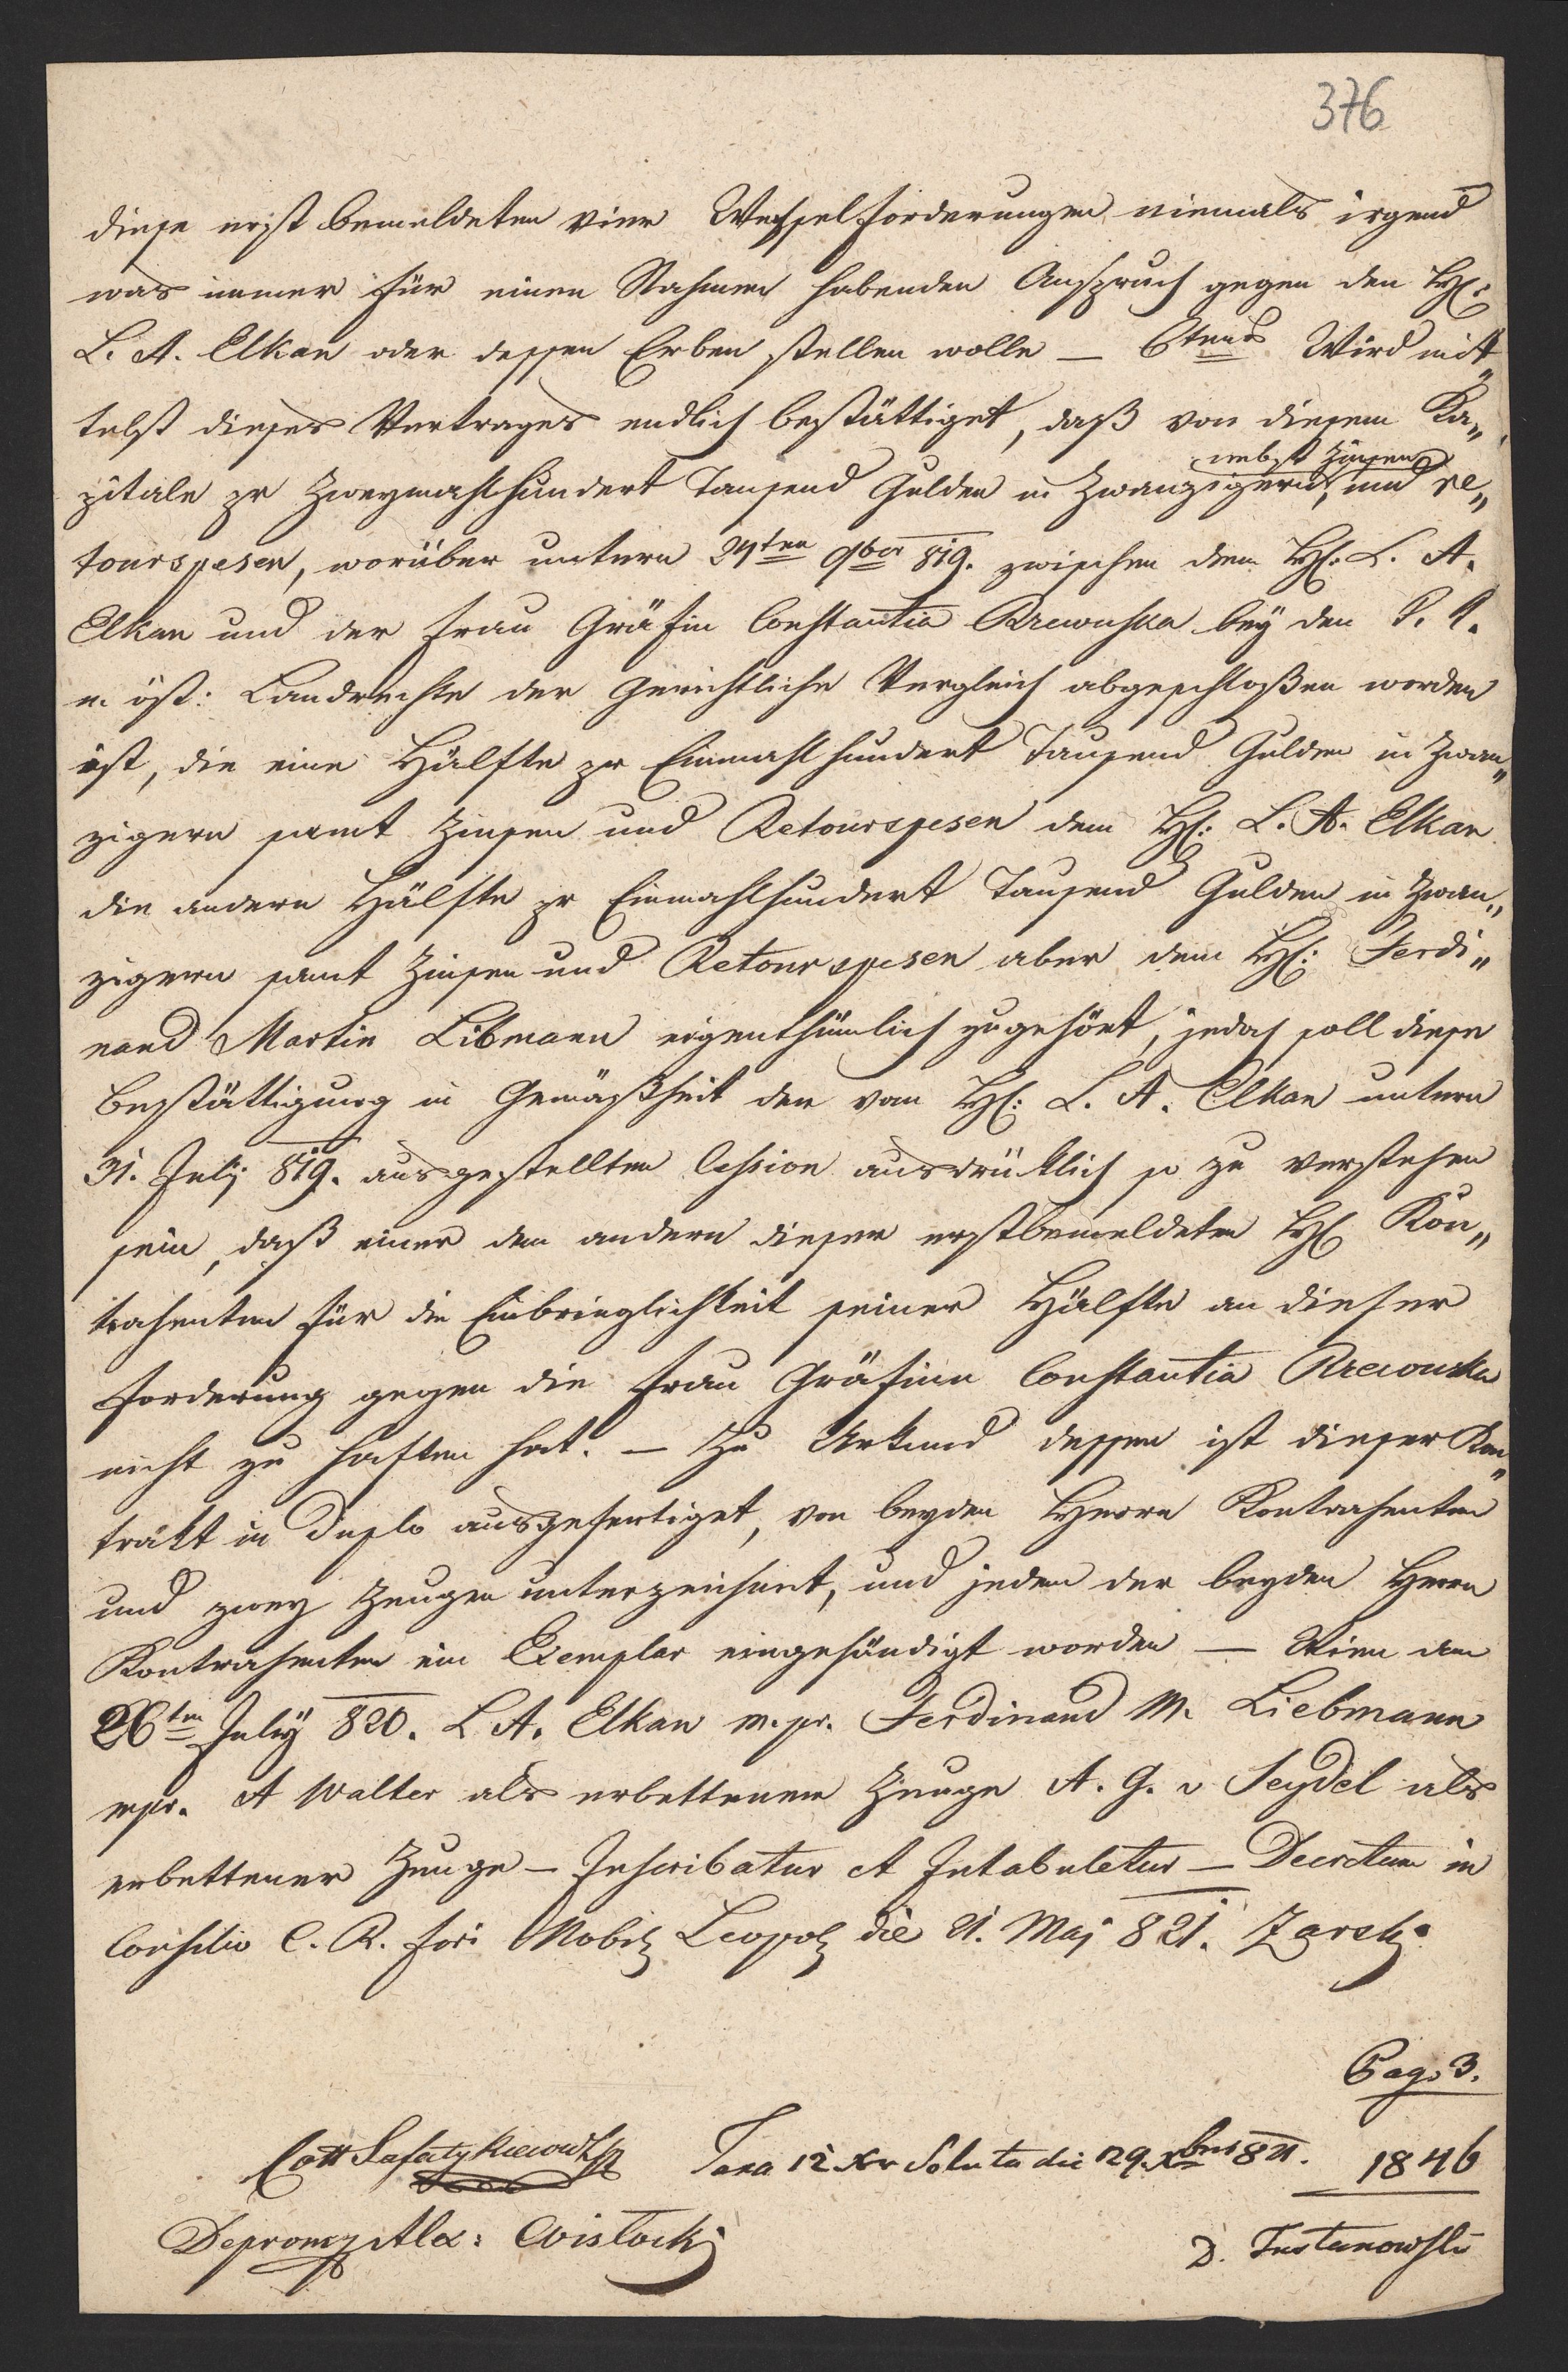 376
diese erst bemeldeten vier Wechselforderungen niemals irgend
was immer für einen Nahmen habenden Anspruch gegen den H:
L. A. Elkan oder dessen Erben stellen wolle — 6tens Wird mit„
telst dieses Vertrages endlich bestättiget, daß von diesem Ka„
nebst Zinsen
pitale pr Zweymahlhundert Tausend Gulden in Zwanzigern, und re„
tourspesen, worüber unterm 24ten 9ber 819. zwischen dem H: L. A.
Elkan und der Frau Gräfin Constantia Rzewuska bey den k. k.
n. öst: Landrechte der Gerichtliche Vergleich abgeschloßen worden
ist, die eine Hälfte pr Einmahlhundert Tausend Gulden in Zwan„
zigern samt Zinsen und Retourspesen dem H: L. A. Elkan
die andere Hälfte pr Einmahlhundert Tausend Gulden in Zwan„
zigern samt Zinsen und Retourspesen aber dem H: Ferdi„
nand Martin Libmann eigenthümlich zugehört, jedoch soll diese
Bestättigung in Gemäßheit der vom H: L. A. Elkan unterm
31. July 819. ausgestellten Cession ausdrücklich so zu verstehen
sein, daß einer dem andern dieser erstbemeldeten H Kon„
trahenten für die Einbringlichkeit seiner Hälfte an dieser
Forderung gegen die Frau Gräfinn Constantia Rzewuska
nicht zu haften hat. — Zu Urkund dessen ist dieser Kon„
trakt in Duplo ausgefertiget, von beyden Herrn Kontrahenten
und zwey Zeugen unterzeichnet, und jedem der beyden Herrn
Kontrahenten ein Exemplar eingehändigt worden — Wien am
26ten July 820. L. A. Elkan m.pr. Ferdinand M. Liebmann
mpr. A Walter als erbettener Zeuge A. G. v Seydel als
erbettener Zeuge — Inscribatur et Intabuletur — Decretum in
Consilio C. R. Fori Nobil Leopol die 21. Maj 821. Zarski
Pag. 3.
Taxa 12 Xr Soluta die 29. Xbris 821. 1846
Depromp Alex: Wisłocki
D. Tustanowski